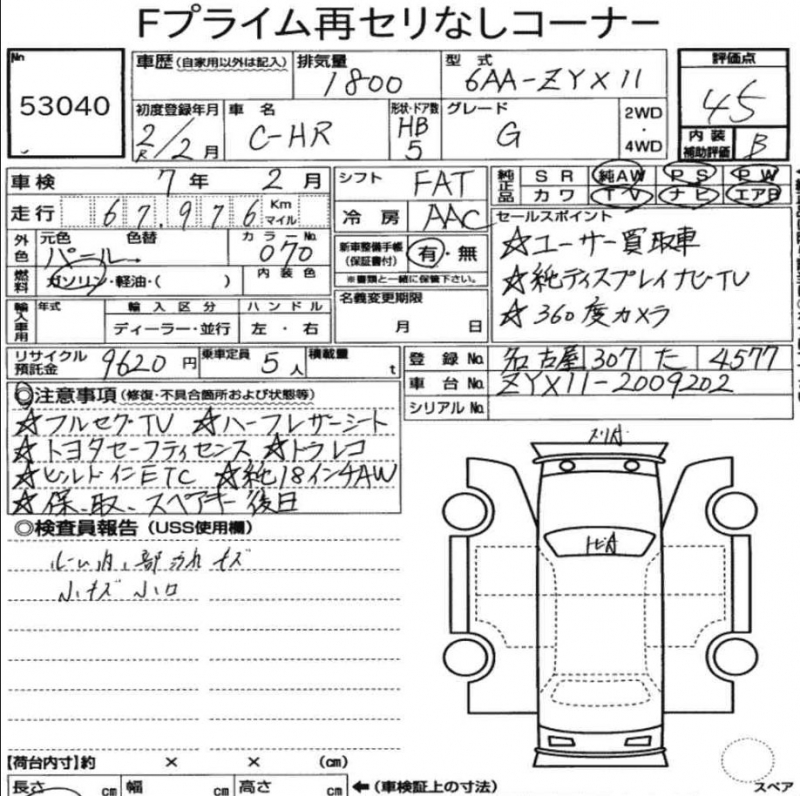 Fプライム再セリなしコーナー
No 53040
車歴 (自家用以外は記入)
排気量 1800
型式 6AA-ZYX11
評価点 4.5
初度登録年月 R2年/2月
車名 C-HR
形状・ドア数 HB 5
グレード G
2WD・4WD
内装補助評価 B
車検 7年 2月
シフト FAT
純正品 SR 純AW PS PW
カワ TV ナビ エアB
走行 67,976 Km マイル
冷房 AAC
セールスポイント
外色 元色 パール 色替
カラーNo. 070
新車整備手帳(保証書付) 有・無
※書類と一緒に保管下さい。
☆ユーザー買取車
燃料 ガソリン・軽油・( )
内装色
☆純ディスプレイナビTV
名義変更期限
月 日
☆360度カメラ
輸入車用 年式 輸入区分 ハンドル
ディーラー・並行 左・右
リサイクル預託金 9620円
乗車定員 5人
積載量 t
登録No. 名古屋 307 た 4577
車台No. ZYX11-2009202
シリアルNo.
◎注意事項 (修復・不具合箇所および状態等)
☆フルセグTV ☆ハーフレザーシート
☆トヨタセーフティセンス ☆ドラレコ
☆ビルトインETC ☆純18インチAW
☆保、取、スペアキー後日
◎検査員報告 (USS使用欄)
キズ
小キズ 小ロ
【荷台内寸】約 × × (cm)
長さ cm 幅 cm 高さ cm ←(車検証上の寸法)
スペア